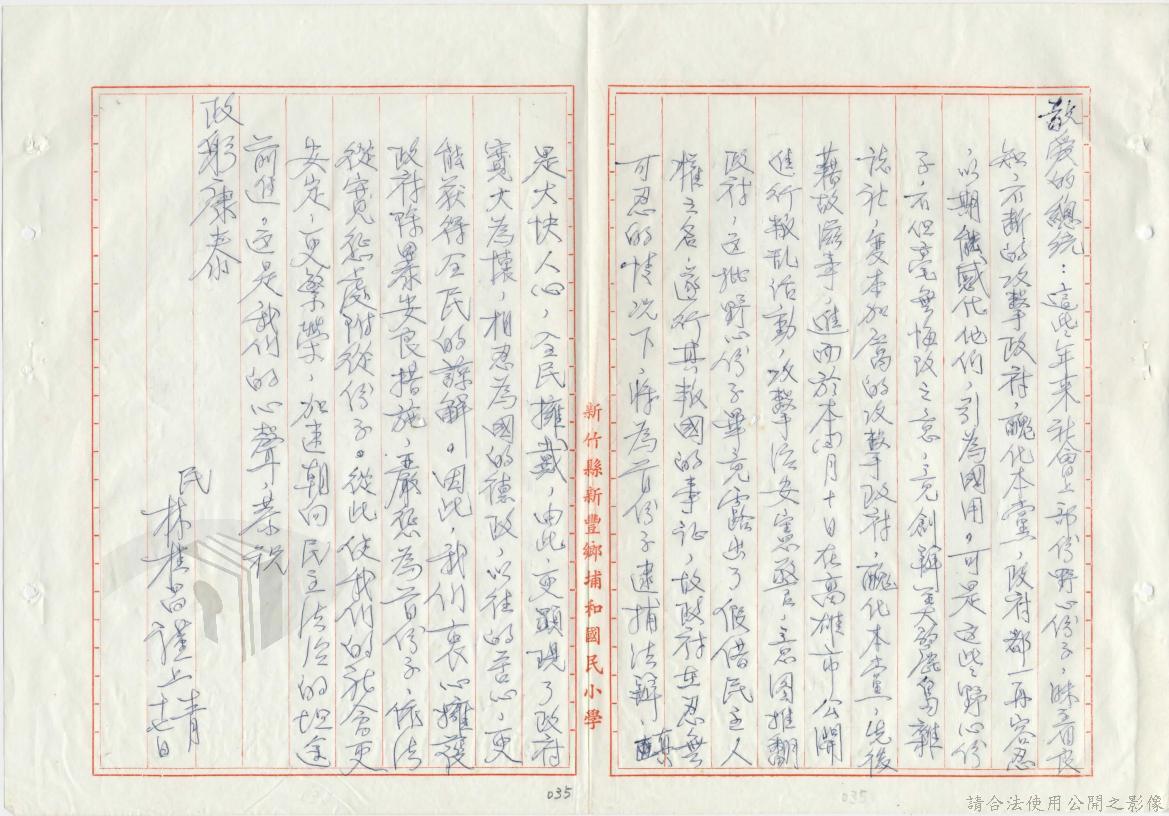 敬爱的總統：這些年来社會上一部份野心份子，昧着良
知，不断的攻擊政府，醜化本黨，政府都一再容忍
，以期能感化他们，引為國用。可是这些野心份
子，不但毫無悔改之意，竟創辦美麗島雜
誌社，变本加厲的攻擊政府，醜化本黨，先後
藉故滋事，進而於本月十日在高雄市公開
進行叛乱活動，攻擊治安憲警，意图推翻
政府，这批野心份子畢竟露出了假借民主人
權之名，遂行其叛國的事证，故政府在忍無
可忍的情况下，将為首份子逮捕法辦，真
是大快人心，全民擁戴，由此更顕現了政府
寬大為懷，相忍為國的德政，以往的苦心，更
能获得全民的諒解。因此，我们衷心擁護
政府除暴安良措施，嚴惩為首份子，依法
從寬惩處附從份子。從此使我们的社會更
安定，更繁榮，加速朝向民主法治的坦途
前進，这是我们的心聲，恭祝
政躬康泰
民
林 昌謹上
新竹縣新豐鄉埔和國民小學
035
035
請合法使用公開之影像